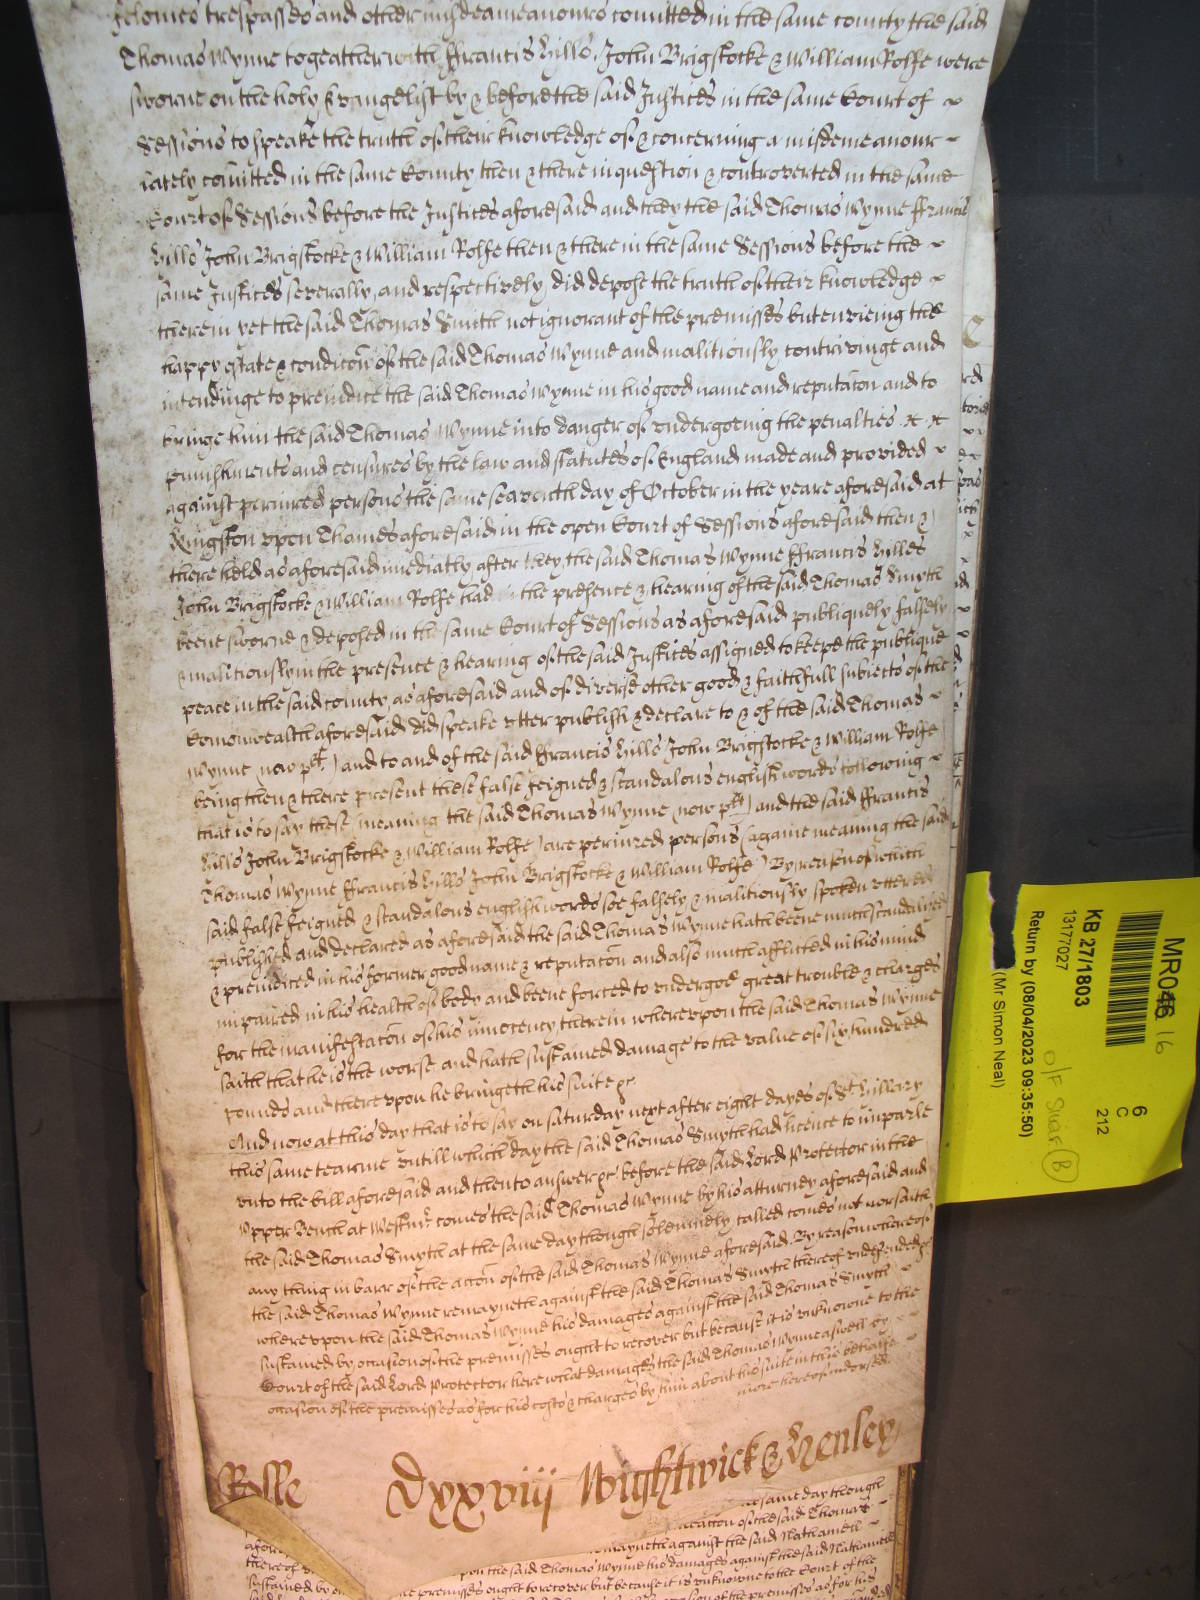 felonies trespasses and other misdeameanours comitted in the same county the said
Thomas Wynne togeather with ffrancis Hills John Brigstocke & William Rolfe were
sworne on the holy Evangelist by & before the said Justices in the same Court of
Sessions to speake the truth of their knowledge of & concerning a misdemeanour
lately comitted in the same County then & there in question & controverted in the same
Court of Sessions before the Justices aforesaid and they the said Thomas Wynne ffrancis
Hills John Brigstocke & William Rolfe then & there in the same Sessions before the
same Justices severally and respectively did depose the truth of their knowledge
therein yet the said Thomas Smith not ignorant of the premisses but envieing the
happy estate & condicon of the said Thomas Wynne and malitiously contrivinge and
intendinge to preiudice the said Thomas Wynne in his good name and reputacon and to
bringe him the said Thomas Wynne into danger of undergoeing the penalties
punishments and censures by the law and statutes of England made and provided
against periured persons the same seaventh day of October in the yeare aforesaid at
Kingston upon Thames aforesaid in the open Court of Sessions aforesaid then &
there held as aforesaid imediatly after they the said Thomas Wynne ffrancis Hilles
John Brigstocke & William Rolfe had in the presence & hearing of the said Thomas Smyth
beene sworne & deposed in the same Court of Sessions as aforesaid publiquely falsely
& malitiously in the presence & hearing of the said Justices assigned to keepe the publique
peace in the said county as aforesaid and of diverse other good & faithfull subiects of the
Comonwealth aforesaid did speake utter publish & declare to & of the said Thomas
Wynne now plt and to and of the said ffrancis Hills John Brigstocke & William Rolfe
being then & there present these false feigned & scandalous english words following
that is to say these (meaning the said Thomas Wynne now plt) and the said ffrancis
Hills John Brigstocke & William Rolfe) are periured persons (againe meaning the said
Thomas Wynne ffrancis Hills John Brigstocke & William Rolfe) By reason of which
said false feigned & scandalous english words soe falsely & malitiously spoken uttered
published and declared as aforesaid the said Thomas Wynne hath beene much scandalized
& preiudiced in his former good name & reputacon and also much afflicted in his mind
impaired in his health of body and beene forced to undergoe great trouble & charges
for the manifestacon of his innocency therein whereupon the said Thomas Wynne
saith that he is the worse and hath sustained damage to the value of six hundred
pounds and thereupon he bringeth his suite &c
And now at this day that is to say on Saturday next after eight dayes of St Hillary
this same tearme untill which day the said Thomas Smyth had licence to imparle
unto the bill aforesaid and then to answer &c before the said Lord Protector in the
Upper Bench at Westmr comes the said Thomas Wynne by his atturney aforesaid and
the said Thomas Smyth at the same day though solemnely called comes not nor saith
any thing in barr of the accon of the said Thomas Wynne aforesaid By reason whereof
the said Thomas Wynne remayneth against the said Thomas Smyth thereof undefended &c
whereupon the said Thomas Wynne his damages against the said Thomas Smyth
sustained by occasion of the premisses ought to recover but because it is unknowne to the
Court of the said Lord Protector here what damages the said Thomas Wynne aswell by
occasion of the premisses as for his costs & charges by him about his suite in this behalfe
more hereof indorsed
Rolle Dxxviij Wightwick & Henley
same day though
accon of the said Thomas
remayneth against the said Nathaniell
upon the said Thomas Wynne his damages against the said Nathaniell
sustained by
the premisses ought to recover but because it is unknowne to the Court of the
occasion of the premisses as for his
MR046 16
KB 27/1803
13177027
Return by (08/04/2023 09:35:50)
(Mr Simon Neal)
6
C
212
B